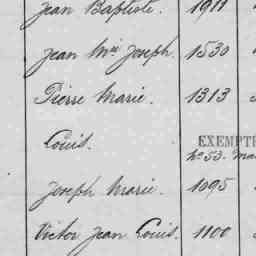 Jean Baptiste. 1911
Jean Mie Joseph. 1530
Pierre Marie. 1313
Louis. EXEMPT
No 53.
Joseph Marie. 1095
Victor Jean Louis. 1100